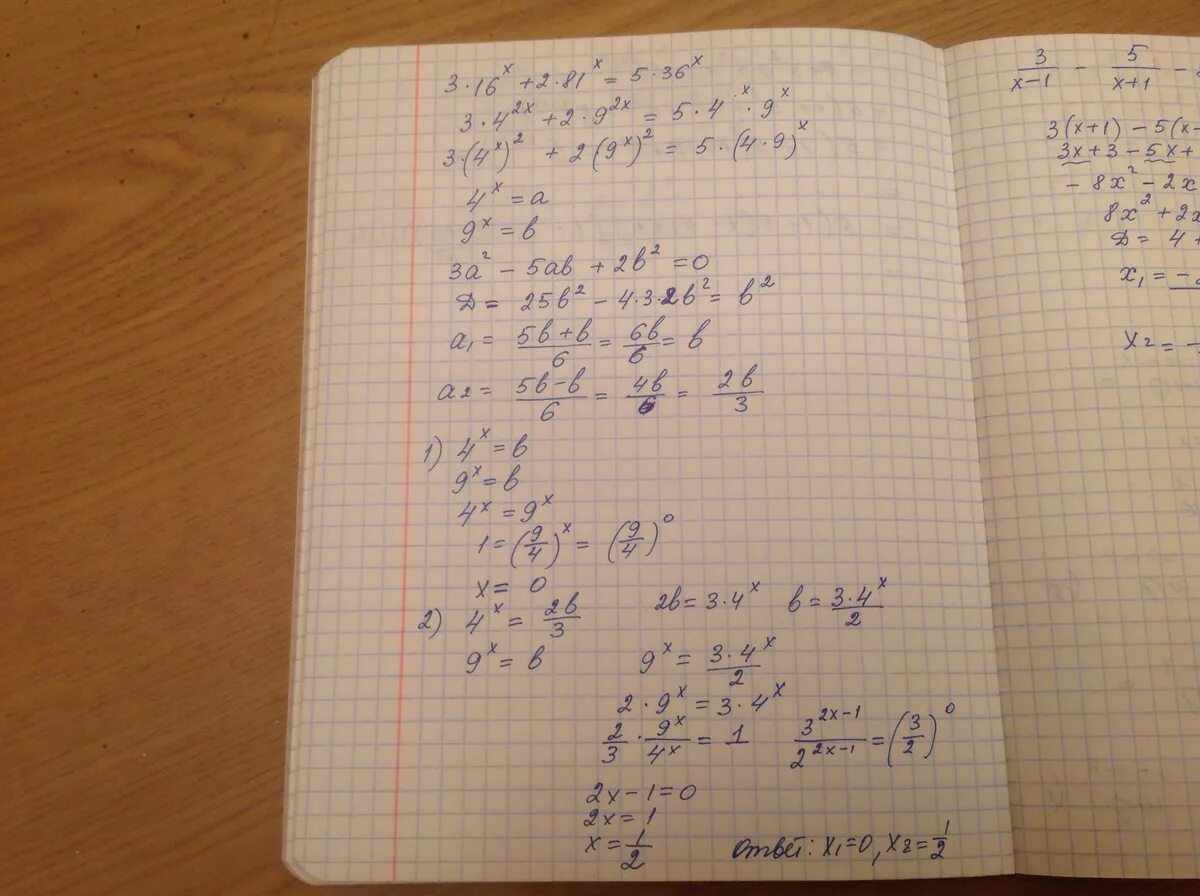 3·16^x + 2·81^x = 5·36^x
3·4^{2x} + 2·9^{2x} = 5·4^x·9^x
3·(4^x)^2 + 2(9^x)^2 = 5·(4·9)^x
4^x = a
9^x = b
3a^2 - 5ab + 2b^2 = 0
D = 25b^2 - 4·3·2b^2 = b^2
a_1 = \frac{5b+b}{6} = \frac{6b}{6} = b
a_2 = \frac{5b-b}{6} = \frac{4b}{6} = \frac{2b}{3}
1) 4^x = b
9^x = b
4^x = 9^x
1 = (\frac{9}{4})^x = (\frac{9}{4})^0
x = 0
2) 4^x = \frac{2b}{3} 2b = 3·4^x b = \frac{3·4^x}{2}
9^x = b 9^x = \frac{3·4^x}{2}
2·9^x = 3·4^x
\frac{2}{3}·\frac{9^x}{4^x} = 1 \frac{3^{2x-1}}{2^{2x-1}} = (\frac{3}{2})^0
2x - 1 = 0
2x = 1
x = \frac{1}{2} Ответ: x_1 = 0, x_2 = \frac{1}{2}
\frac{3}{x-1} - \frac{5}{x+1} -
3(x+1) - 5(x-
3x + 3 - 5x +
- 8x^2 - 2x
8x^2 + 2x
D = 4 +
x_1 = -
x_2 = -